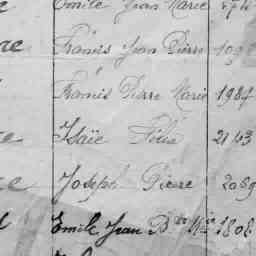 Emile Jean Marie 874
re Francis Jean Pierre 1092
Francis Pierre Marie 1984
re Isaïe Félix 2143
re Joseph Pierre 2069
Emile Jean Bte Mie 1808